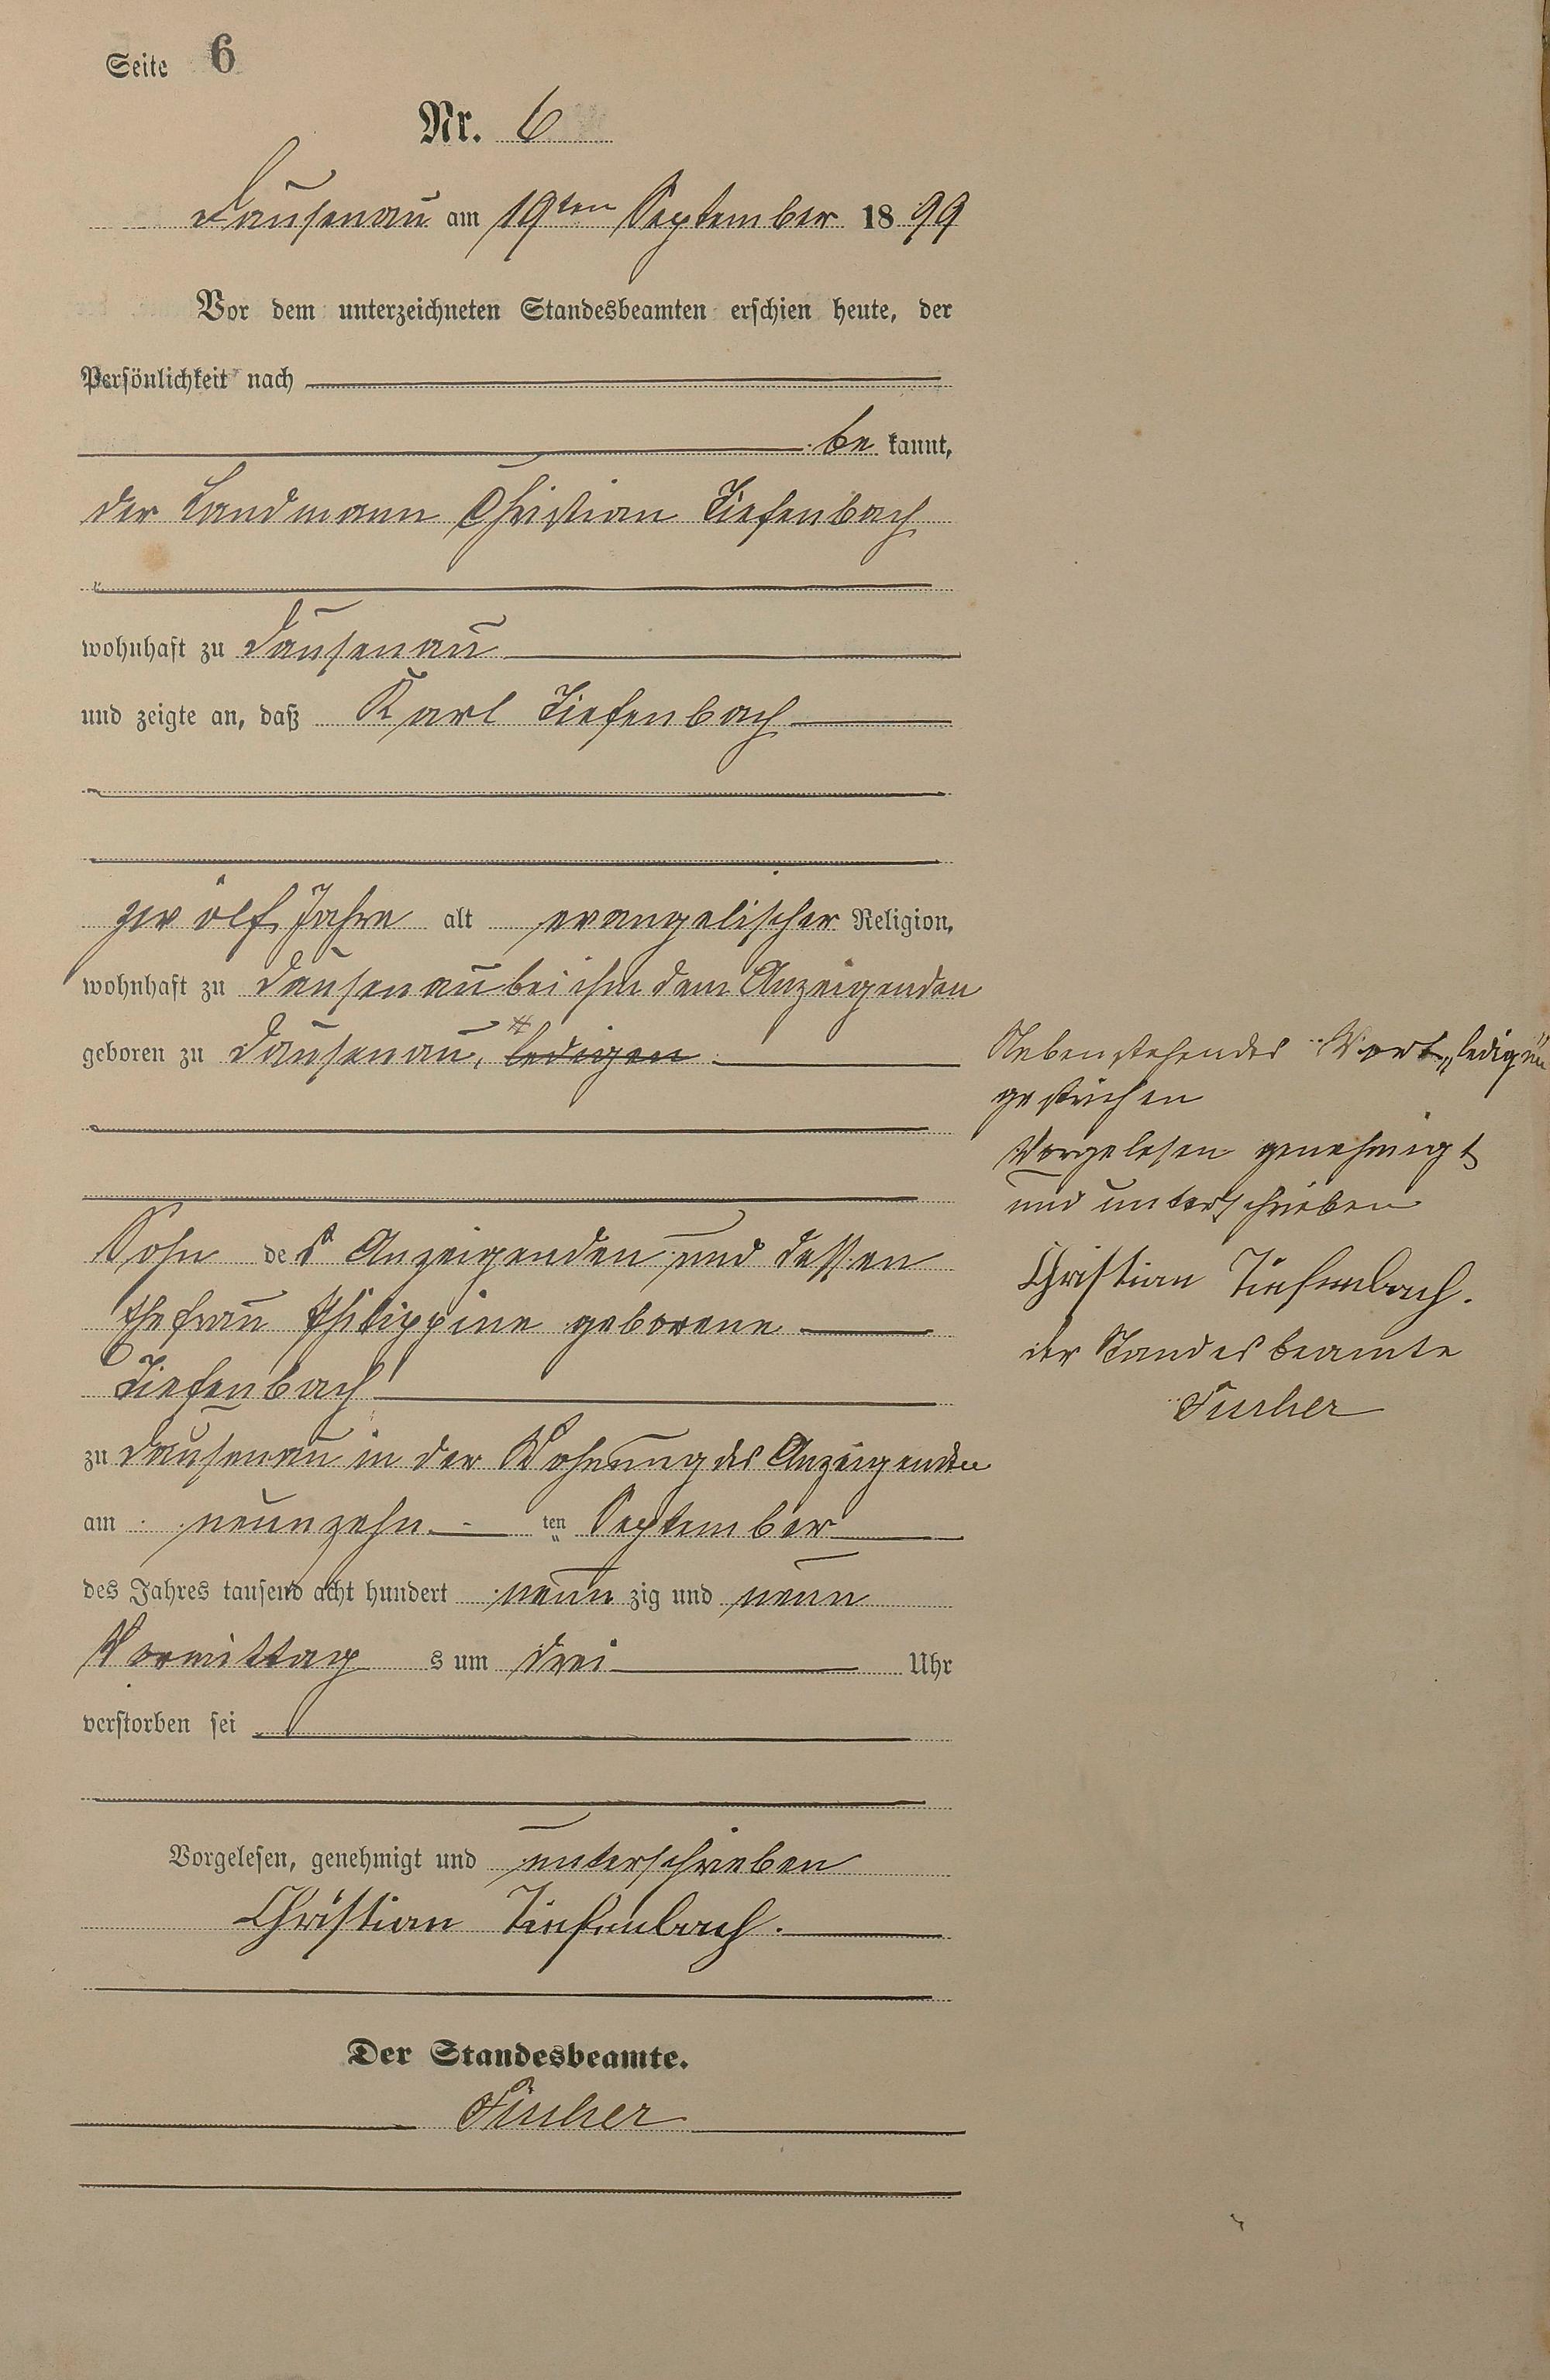 Seite 6
Nr. 6
Dausenau am 19ten September 1899
Vor dem unterzeichneten Standesbeamten erschien heute, der
Persönlichkeit nach
be kannt,
der Landmann Christian Tiefenbach
wohnhaft zu Dausenau
und zeigte an, daß Karl Tiefenbach
zwölf Jahre alt evangelischer Religion,
wohnhaft zu Dausenau bei ihm dem Anzeigenden
geboren zu Dausenau, # ledigen
Sohn des Anzeigenden und dessen
Ehefrau Philippine geborene
Tiefenbach
zu Dausenau in der Wohnung des Anzeigenden
am neunzehn ten September
des Jahres tausend acht hundert neun zig und neun
Vormittag s um drei Uhr
verstorben sei
Vorgelesen, genehmigt und unterschrieben
Christian Tiefenbach.
Der Standesbeamte.
Nebenstehendes Wort „ledigen"
gestrichen
Vorgelesen genehmigt
und unterschrieben
Christian Tiefenbach.
der Standesbeamte